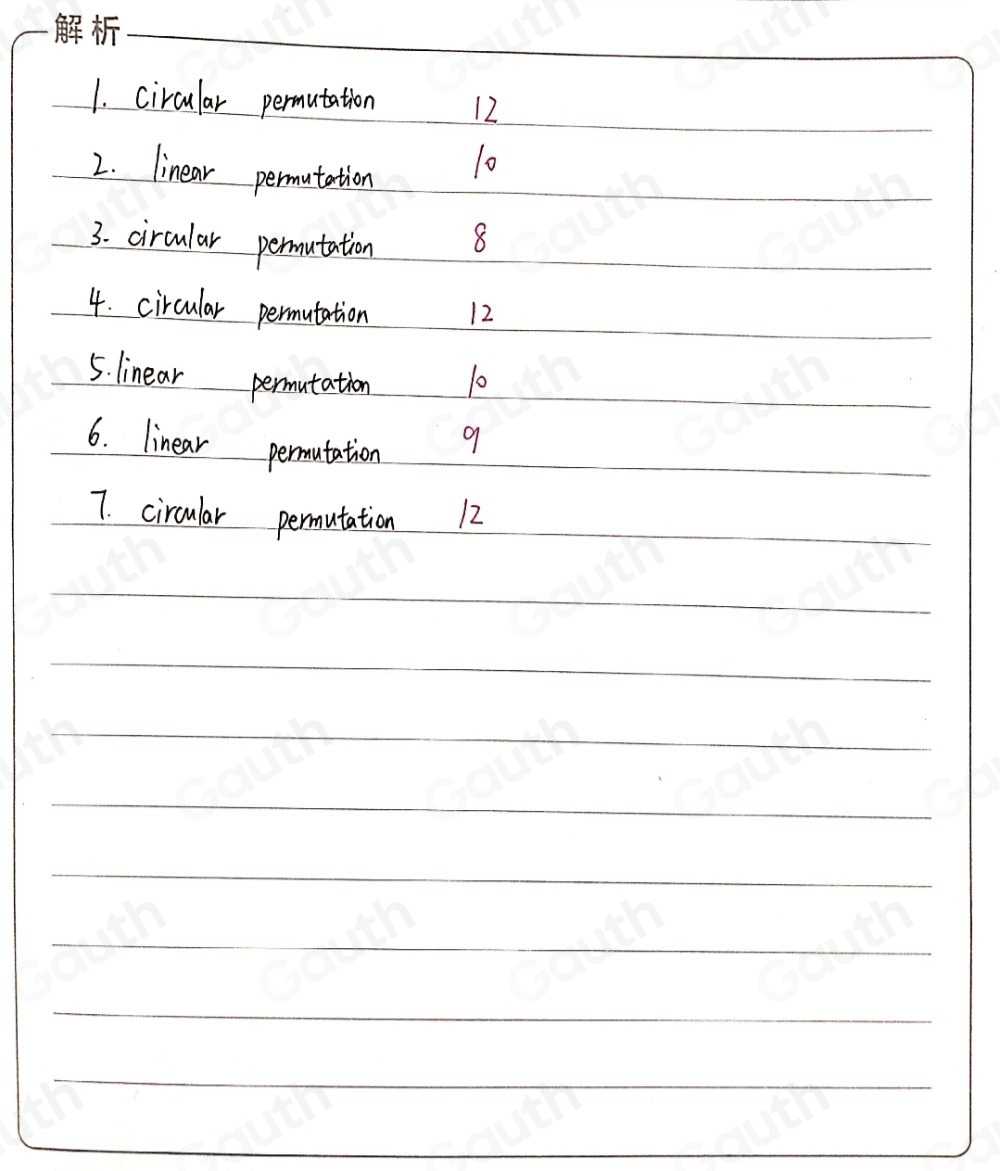 解析
1. circular permutation 12
2. linear permutation 10
3. circular permutation 8
4. circular permutation 12
5. linear permutation 10
6. linear permutation 9
7. circular permutation 12